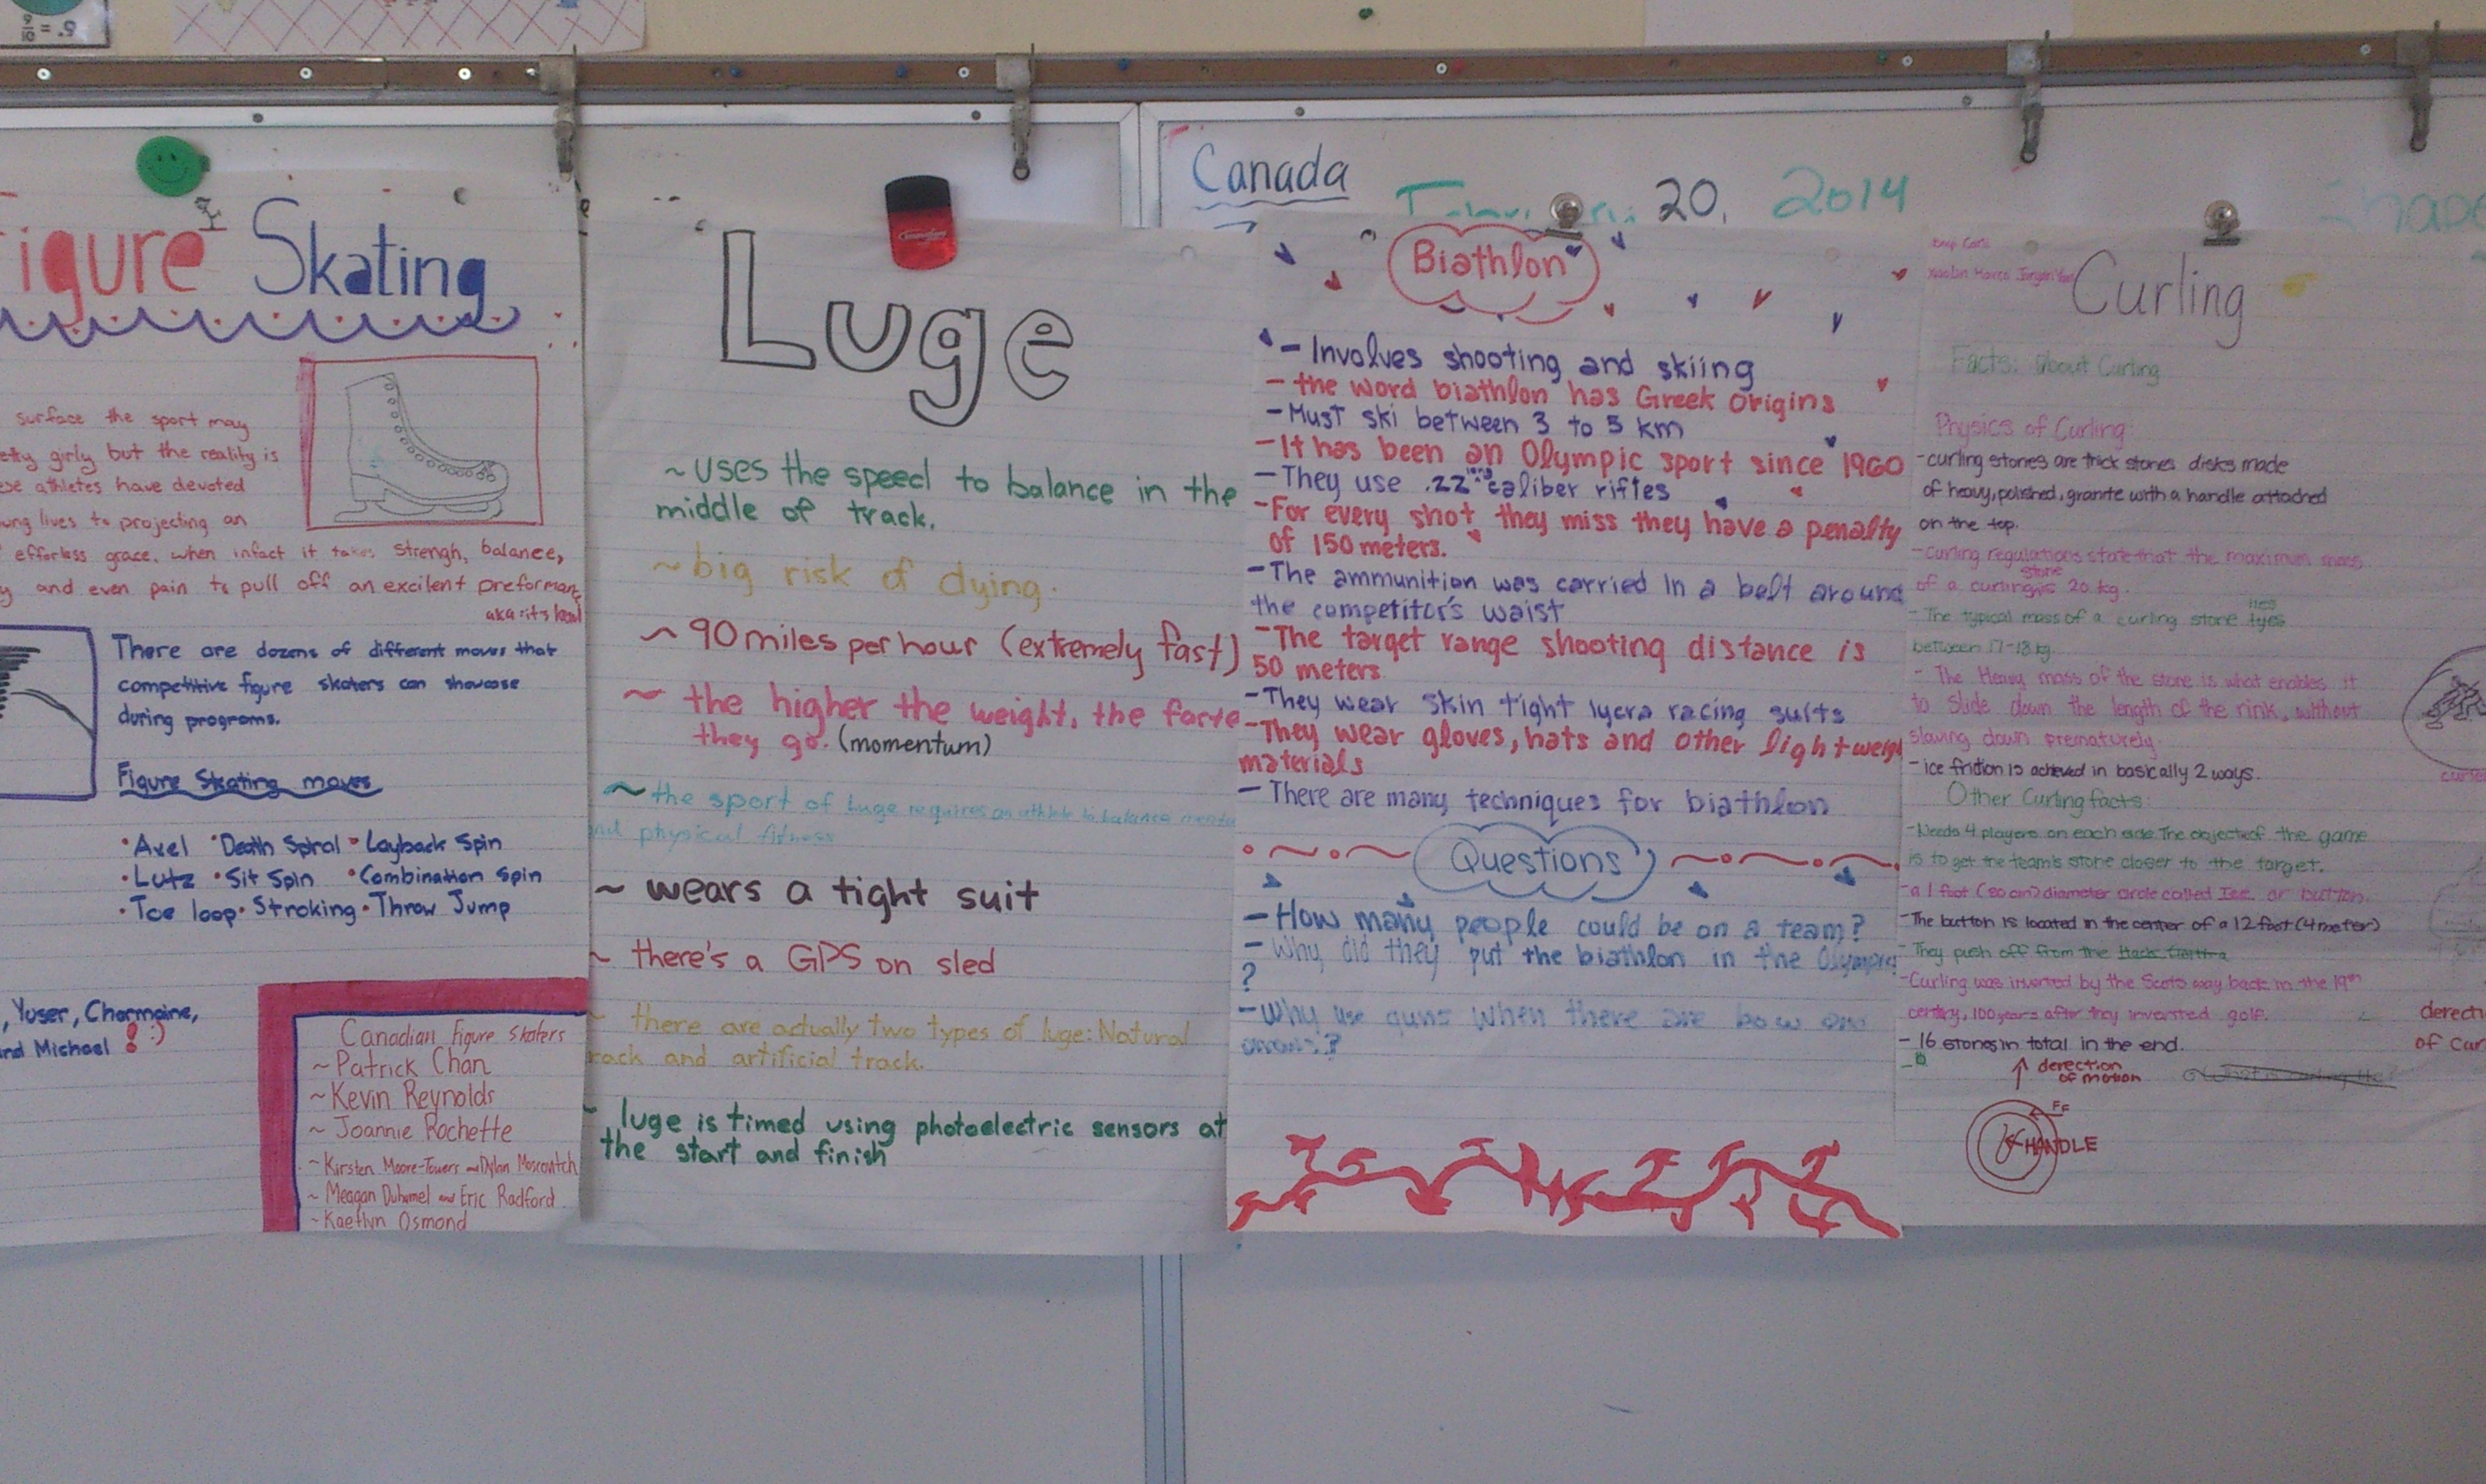 9/10 = .9
Canada
20, 2014
Figure Skating
surface the sport may
girly but the reality is
athletes have devoted
lives to projecting an
efforless grace. when infact it takes strengh, balance,
and even pain to pull off an excilent preformanc
aka: it's hard
There are dozens of different moves that
competitive figure skaters can showcase
during programs.
Figure Skating moves
• Axel • Death Spiral • Layback Spin
• Lutz • Sit Spin • Combination Spin
• Toe loop • Stroking • Throw Jump
, Yuser, Charmaine,
and Michael ! :)
Canadian figure skaters
~ Patrick Chan
~ Kevin Reynolds
~ Joannie Rochette
~ Kirsten Moore-Towers and Dylan Moscovitch
~ Meagan Duhamel and Eric Radford
~ Kaetlyn Osmond
Luge
~ uses the speed to balance in the
middle of track.
~ big risk of dying.
~ 90 miles per hour (extremely fast)
~ the higher the weight, the faste
they go. (momentum)
~ the sport of luge requires an athlete to balance menta
and physical fitness
~ wears a tight suit
~ there's a GPS on sled
~ there are actually two types of luge: Natural
rack and artificial track.
~ luge is timed using photoelectric sensors at
the start and finish
Biathlon
- Involves shooting and skiing
- the word biathlon has Greek origins
- Must ski between 3 to 5 km
- It has been an Olympic sport since 1960
- They use .22 long caliber rifles
- For every shot they miss they have a penalty
of 150 meters.
- The ammunition was carried in a belt around
the competitor's waist
- The target range shooting distance is
50 meters.
- They wear skin tight lycra racing suits
- They wear gloves, hats and other lightweigh
materials
- There are many techniques for biathlon
Questions
- How many people could be on a team?
- Why did they put the biathlon in the Olympics
?
- Why use guns when there are bow and
arrows?
Curling
Facts: about Curling
Physics of Curling:
- curling stones are thick stones disks made
of heavy, polished, granite with a handle attached
on the top.
- curling regulations state that the maximum mass
of a curling stone is 20 kg.
- The typical mass of a curling stone lies
between 17-18 kg.
- The Heavy mass of the stone is what enables it
to slide down the length of the rink, without
slowing down prematurely.
- ice friction is achieved in basically 2 ways.
Other Curling facts:
- Needs 4 players on each side. The object of the game
is to get the team's stone closer to the target.
- a 1 foot (30 cm) diameter circle called Tee or button.
- The button is located in the center of a 12 foot (4 meter)
- They push off from the Hack
- Curling was invented by the Scots way back in the 19th
century, 100 years after they invented golf.
- 16 stones in total in the end.
derection
of motion
Ff
HANDLE
derecti
of cur